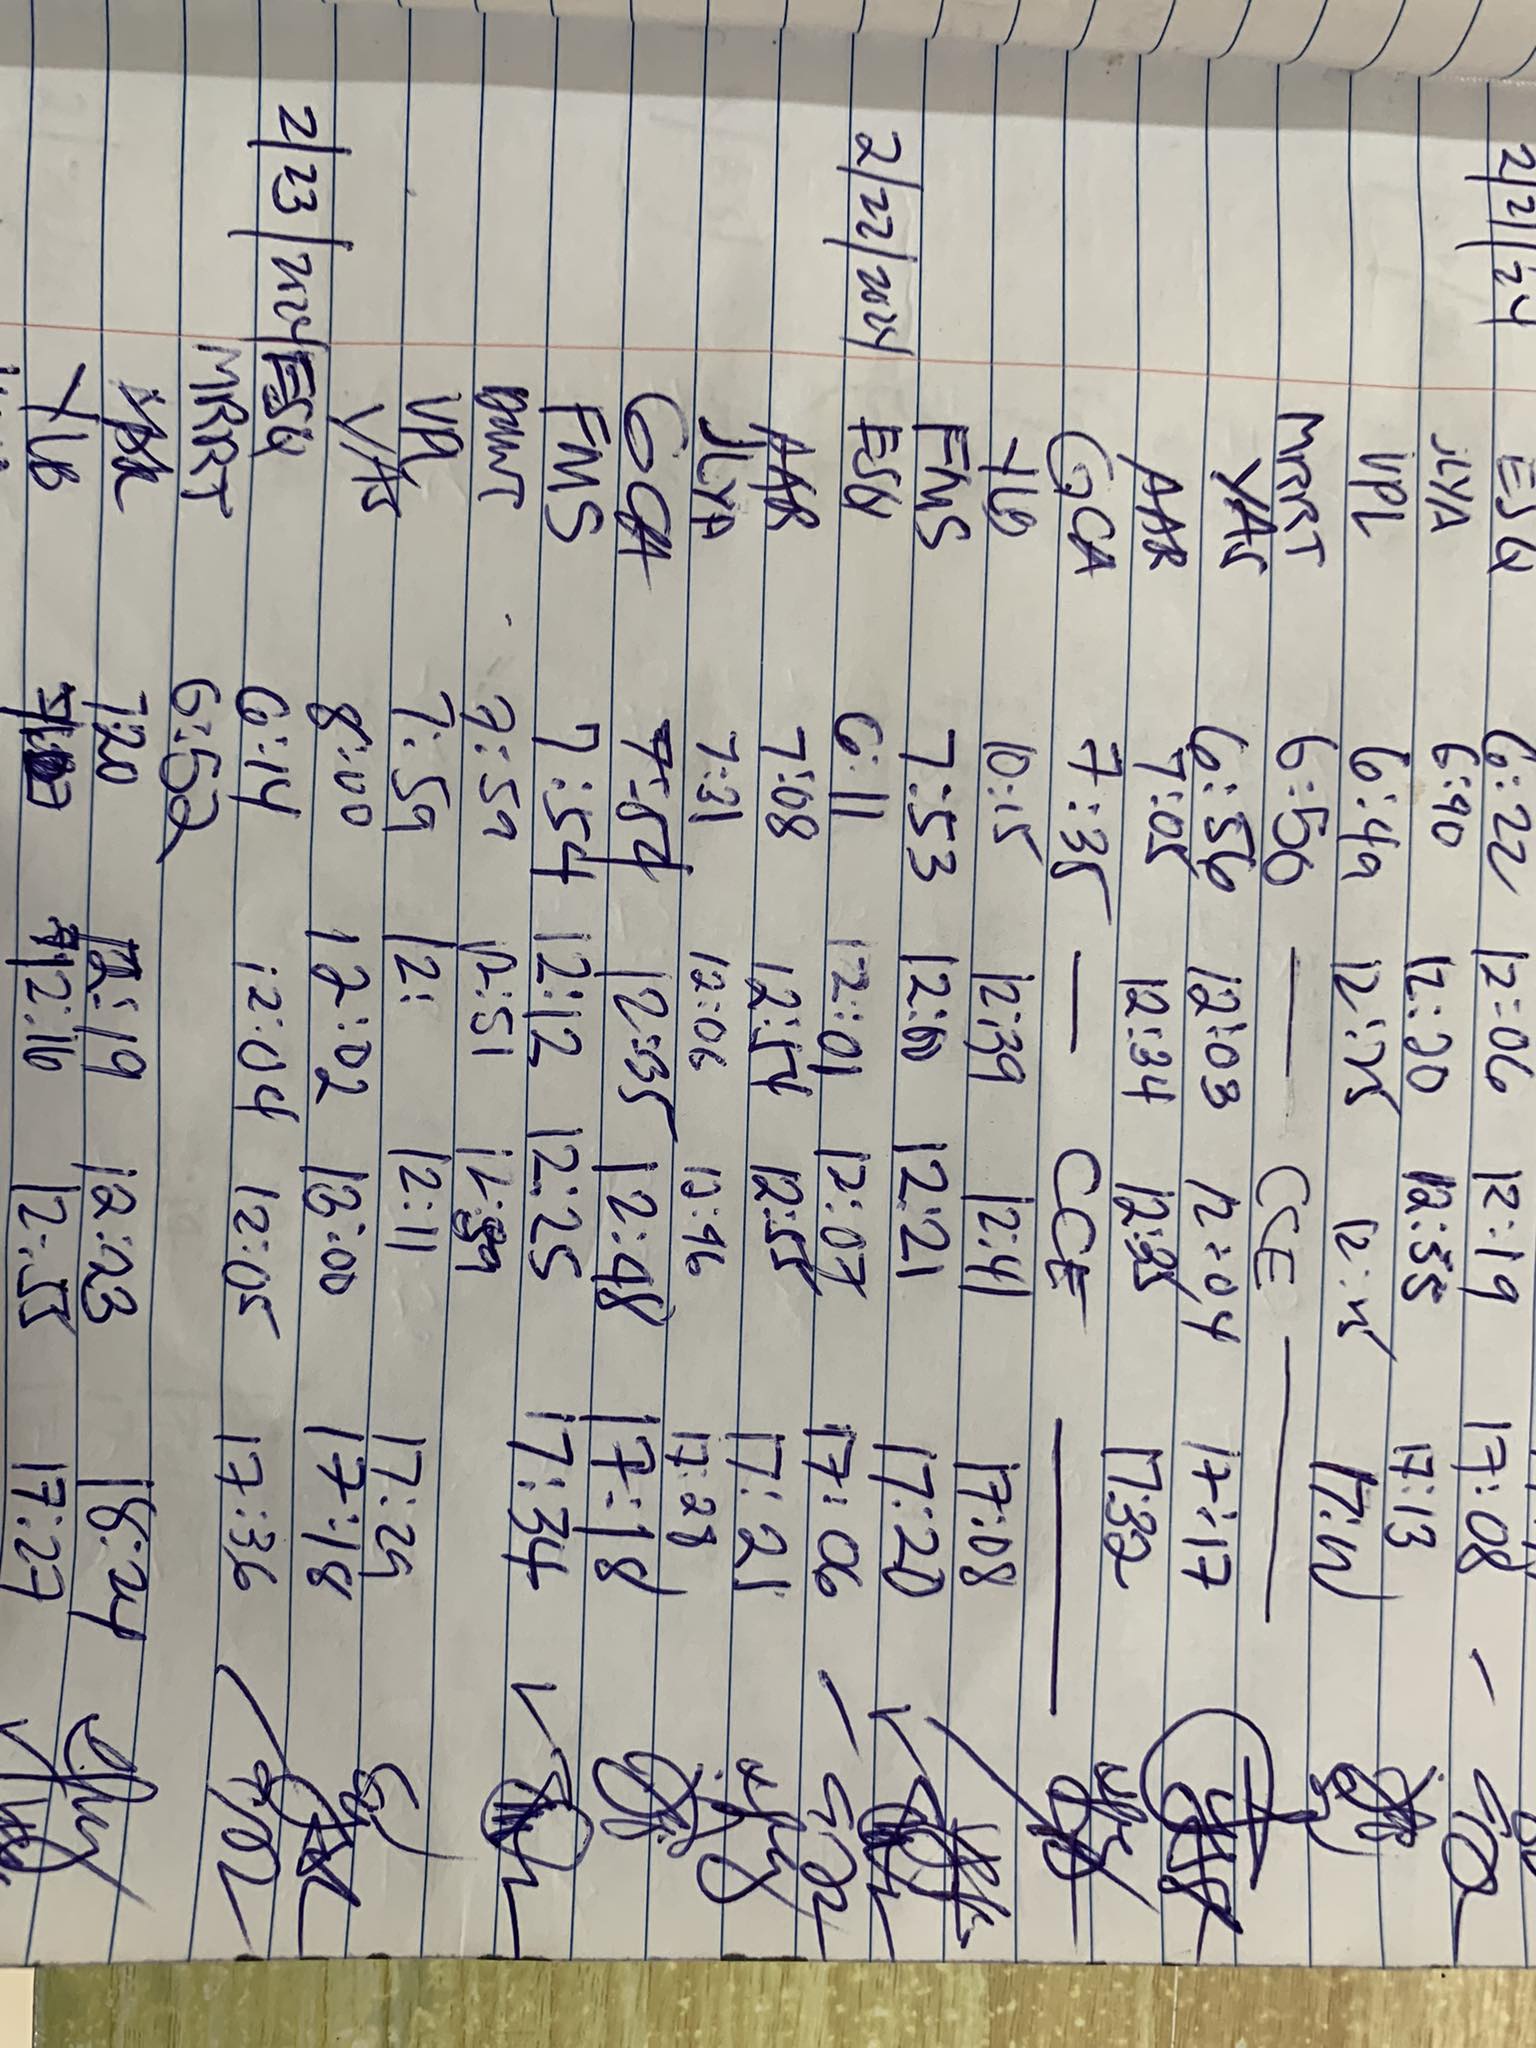 2/21/24 ESQ 6:22 12:06 12:19 17:08
JLYA 6:40 12:20 12:55 17:13
VPL 6:49 12:25 17:20
MRRT 6:50 — CCE —
YAS 6:56 12:03 12:04 17:17
AAR 7:05 12:34 12:35 17:32
GCA 7:35 — CCE —
YLB 10:15 12:39 12:41 17:08
FMS 7:53 12:00 12:21 17:20
2/22/2024 ESQ 6:11 12:01 12:07 17:06
AAR 7:08 12:54 12:55 17:21
JLYA 7:31 12:06 12:46 17:28
GCA 7:54 12:35 12:48 17:18
FMS 7:54 12:12 12:25 17:34
7:59 12:51 12:59
VPL 7:59 12: 12:11 17:29
YAS 8:00 12:02 13:00 17:18
2/23/2024 ESQ 6:14 12:04 12:05 17:36
MRRT 6:52
7:20 12:19 12:23 18:24
YLB 12:16 12:55 17:27